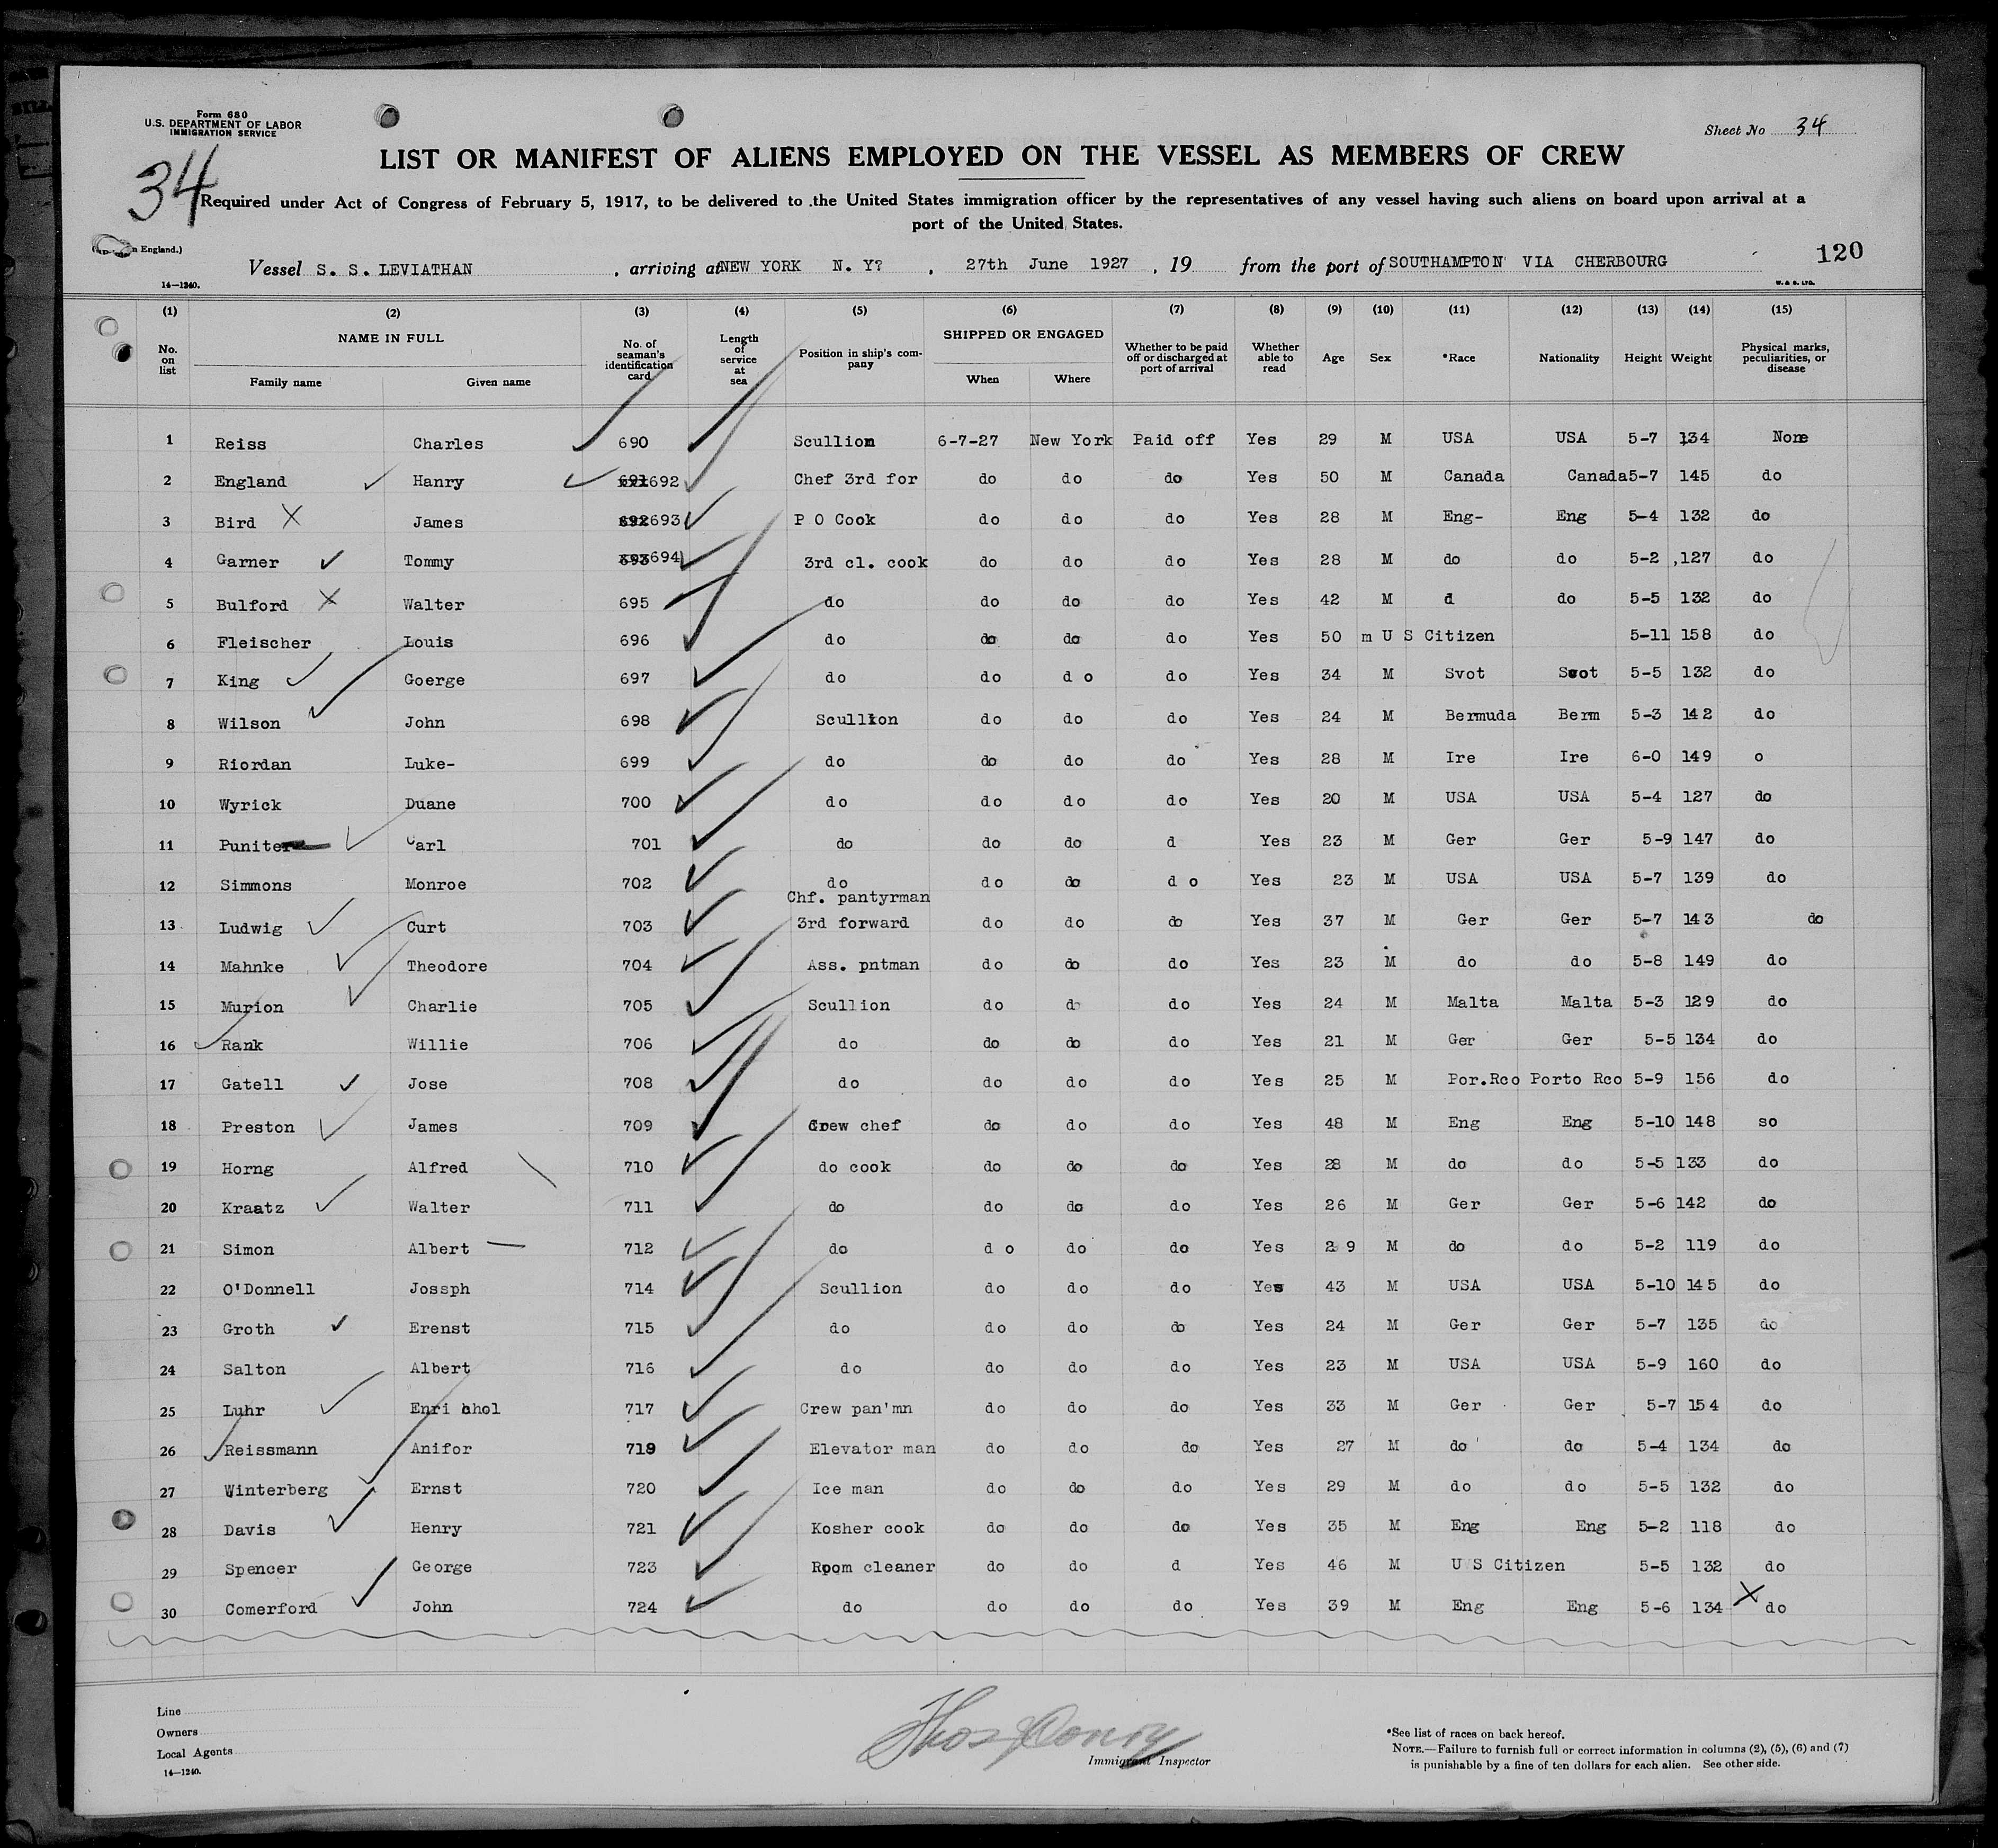 Form 680
U.S. DEPARTMENT OF LABOR
IMMIGRATION SERVICE
Sheet No 34
34
LIST OR MANIFEST OF ALIENS EMPLOYED ON THE VESSEL AS MEMBERS OF CREW
Required under Act of Congress of February 5, 1917, to be delivered to the United States immigration officer by the representatives of any vessel having such aliens on board upon arrival at a
port of the United States.
n England.)
120
Vessel S. S. LEVIATHAN , arriving at NEW YORK N. Y? , 27th June 1927 , 19 from the port of SOUTHAMPTON VIA CHERBOURG
14—1240. W. & S. LTD.
(1) (2) (3) (4) (5) (6) (7) (8) (9) (10) (11) (12) (13) (14) (15)
No. on list NAME IN FULL Family name Given name No. of seaman's identification card Length of service at sea Position in ship's company SHIPPED OR ENGAGED When Where Whether to be paid off or discharged at port of arrival Whether able to read Age Sex *Race Nationality Height Weight Physical marks, peculiarities, or disease
1 Reiss Charles 690 Scullion 6-7-27 New York Paid off Yes 29 M USA USA 5-7 134 None
2 England Hanry 691 692 Chef 3rd for do do do Yes 50 M Canada Canada 5-7 145 do
3 Bird X James 692 693 P O Cook do do do Yes 28 M Eng- Eng 5-4 132 do
4 Garner Tommy 693 694 3rd cl. cook do do do Yes 28 M do do 5-2 ,127 do
5 Bulford X Walter 695 do do do do Yes 42 M d do 5-5 132 do
6 Fleischer Louis 696 do do do do Yes 50 m U S Citizen 5-11 158 do
7 King Goerge 697 do do d o do Yes 34 M Svot Scot 5-5 132 do
8 Wilson John 698 Scullion do do do Yes 24 M Bermuda Berm 5-3 142 do
9 Riordan Luke- 699 do do do do Yes 28 M Ire Ire 6-0 149 o
10 Wyrick Duane 700 do do do do Yes 20 M USA USA 5-4 127 do
11 Puniter Carl 701 do do do d Yes 23 M Ger Ger 5-9 147 do
12 Simmons Monroe 702 do do do d o Yes 23 M USA USA 5-7 139 do
Chf. pantyrman
13 Ludwig Curt 703 3rd forward do do do Yes 37 M Ger Ger 5-7 143 do
14 Mahnke Theodore 704 Ass. pntman do do do Yes 23 M do do 5-8 149 do
15 Murion Charlie 705 Scullion do d do Yes 24 M Malta Malta 5-3 129 do
16 Rank Willie 706 do do do do Yes 21 M Ger Ger 5-5 134 do
17 Gatell Jose 708 do do do do Yes 25 M Por.Rco Porto Rco 5-9 156 do
18 Preston James 709 Crew chef do do do Yes 48 M Eng Eng 5-10 148 so
19 Horng Alfred 710 do cook do do do Yes 28 M do do 5-5 133 do
20 Kraatz Walter 711 do do do do Yes 26 M Ger Ger 5-6 142 do
21 Simon Albert 712 do d o do do Yes 2 9 M do do 5-2 119 do
22 O'Donnell Jossph 714 Scullion do do do Yes 43 M USA USA 5-10 145 do
23 Groth Erenst 715 do do do do Yes 24 M Ger Ger 5-7 135 do
24 Salton Albert 716 do do do do Yes 23 M USA USA 5-9 160 do
25 Luhr Enri hhol 717 Crew pan'mn do do do Yes 33 M Ger Ger 5-7 154 do
26 Reissmann Anifor 719 Elevator man do do do Yes 27 M do do 5-4 134 do
27 Winterberg Ernst 720 Ice man do do do Yes 29 M do do 5-5 132 do
28 Davis Henry 721 Kosher cook do do do Yes 35 M Eng Eng 5-2 118 do
29 Spencer George 723 Room cleaner do do d Yes 46 M U S Citizen 5-5 132 do
30 Comerford John 724 do do do do Yes 39 M Eng Eng 5-6 134 X do
Line
Owners
Local Agents
14—1240.
Immigrant Inspector
*See list of races on back hereof.
NOTE.—Failure to furnish full or correct information in columns (2), (5), (6) and (7)
is punishable by a fine of ten dollars for each alien. See other side.